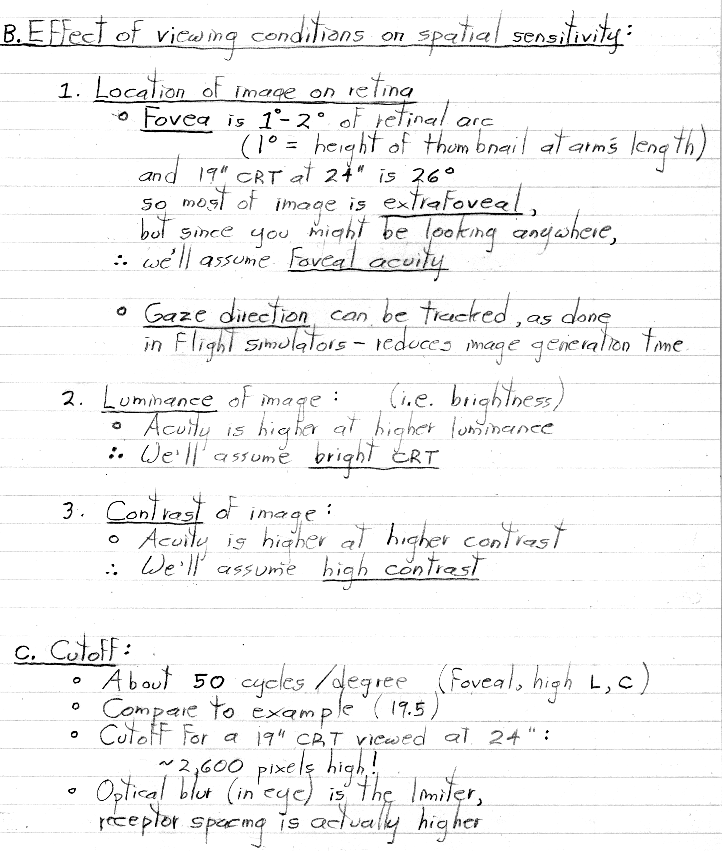 B. Effect of viewing conditions on spatial sensitivity:
1. Location of image on retina
o Fovea is 1°-2° of retinal arc
(1° = height of thumbnail at arm's length)
and 19" CRT at 24" is 26°
so most of image is extrafoveal,
but since you might be looking anywhere,
∴ we'll assume Foveal acuity
o Gaze direction can be tracked, as done
in flight simulators - reduces image generation time
2. Luminance of image: (i.e. brightness)
o Acuity is higher at higher luminance
∴ We'll assume bright CRT
3. Contrast of image:
o Acuity is higher at higher contrast
∴ We'll assume high contrast
C. Cutoff:
o About 50 cycles/degree (Foveal, high L, C)
o Compare to example (19.5)
o Cutoff for a 19" CRT viewed at 24":
~2,600 pixels high!
o Optical blur (in eye) is the limiter,
receptor spacing is actually higher